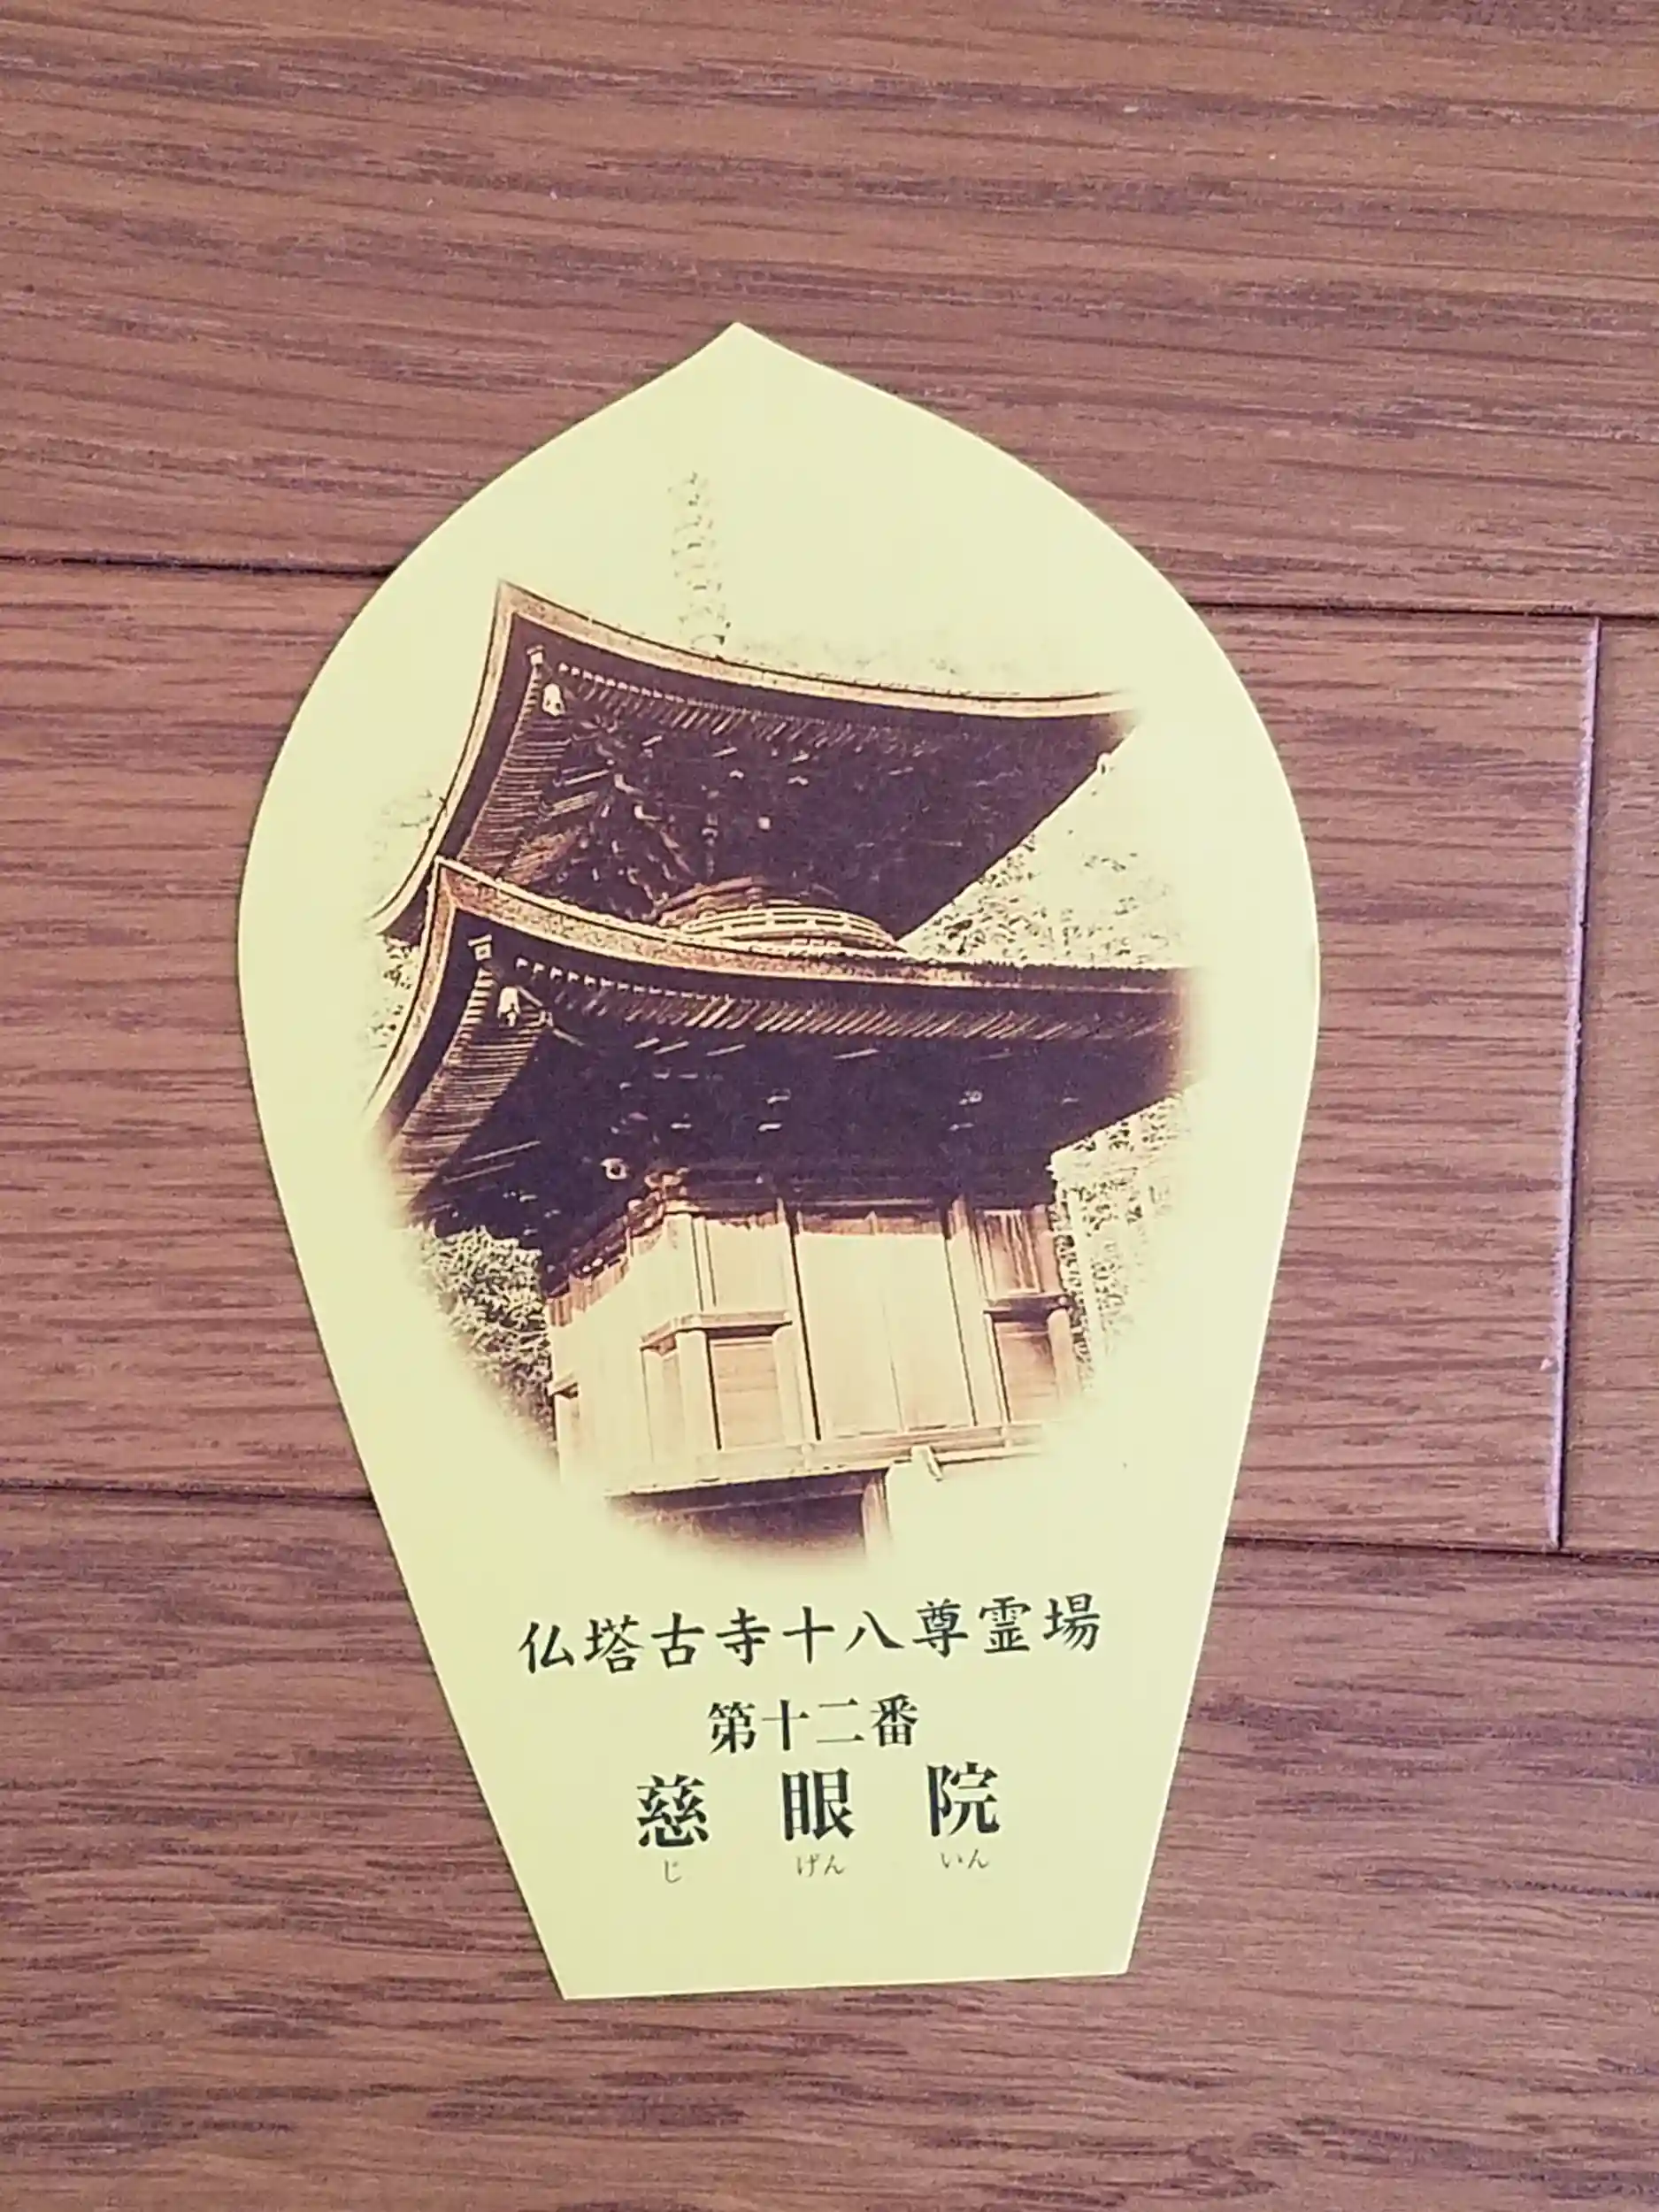 仏塔古寺十八尊霊場
第十二番
慈眼院
じげんいん